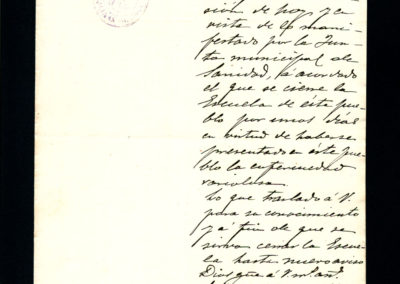 sión de hoy y en
vista de lo mani-
festado por la Jun-
ta municipal de
Sanidad, há acordado
el que se cierre la
Escuela de éste pue-
blo por unos días
en virtud de haberse
presentado en éste pue-
blo la enfermedad
variolosa.
Lo que traslado á V.
para su conocimiento
y á fin de que se
sirva cerrar la Escue-
la hasta nuevo aviso
Dios gũe á V. mˢ. anˢ.